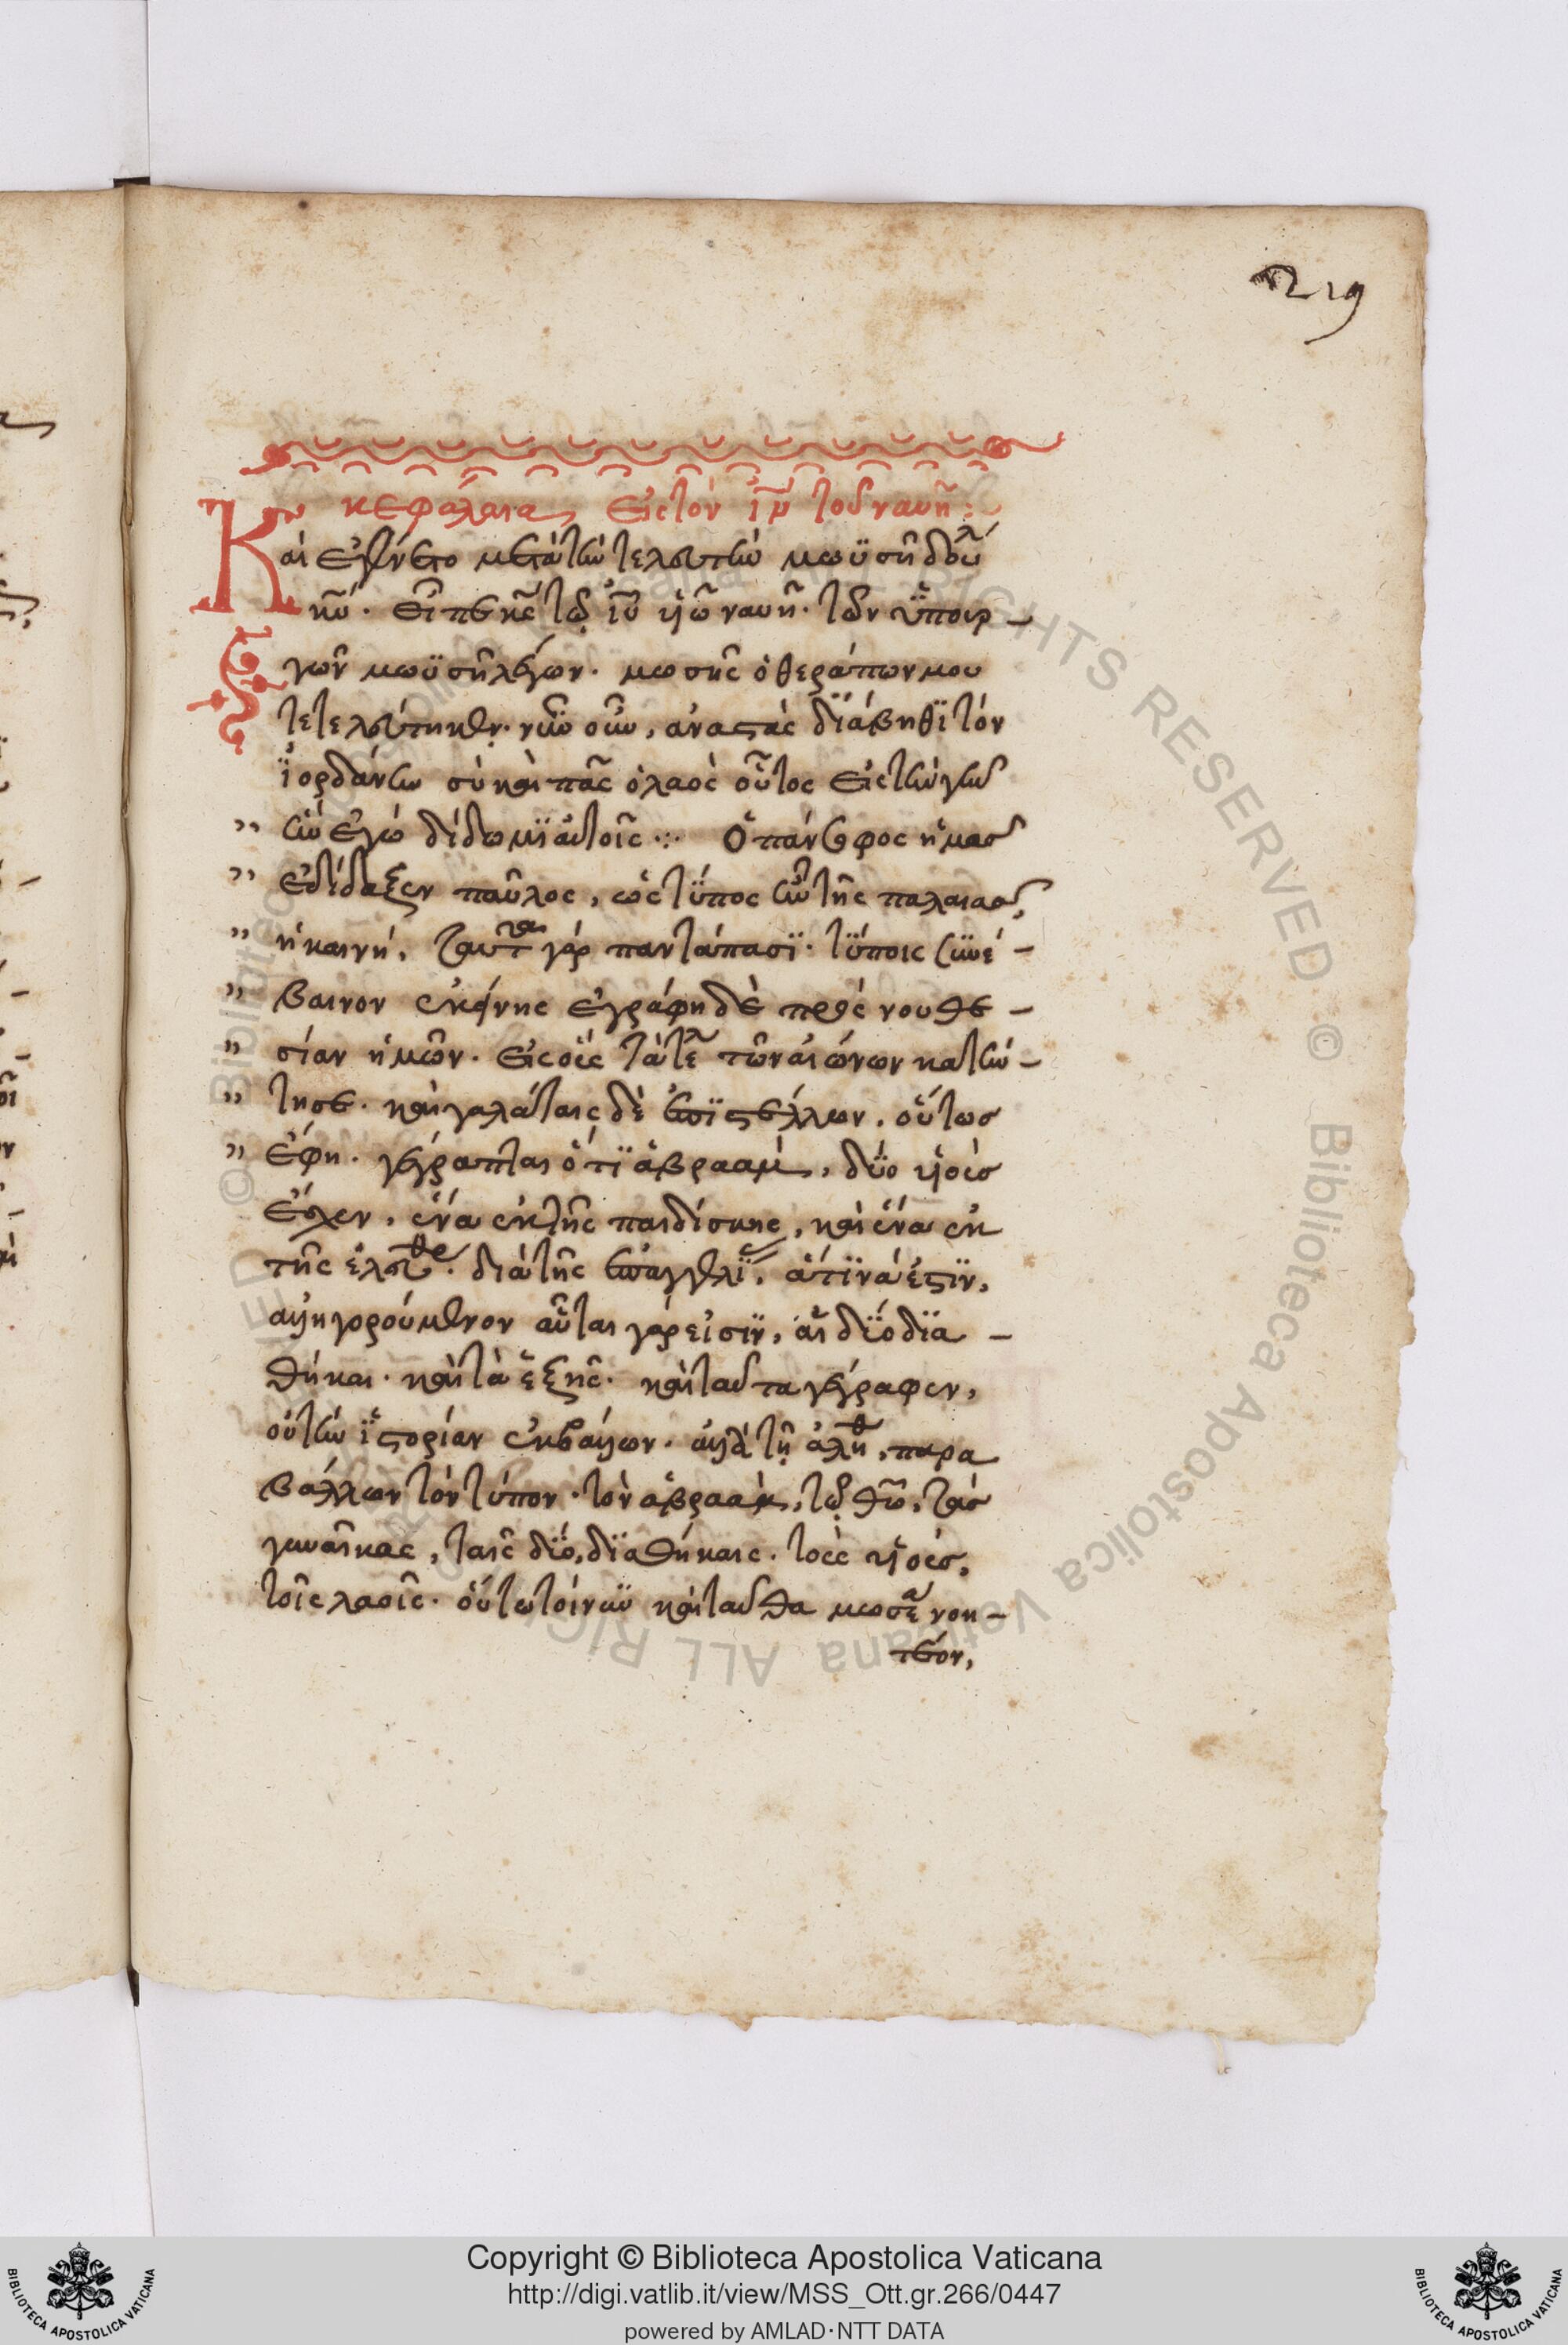 219
κεφάλαια εἰς τὸν ἰῦ τοῦ ναυῆ:
Καὶ ἐγένετο μετὰ τὴν τελευτὴν μωϋσῆ δούλ
κῦ. εἶπε κς τῷ ἰῦ υἱῶ ναυῆ. τὸν ὑπουρ-
γὸν μωϋσῆ λέγων. μωσῆς ὁ θεράπων μου
τετελεύτηκεν. νῦν οὖν, ἀναστὰς διάβηθϊ τὸν
ϊορδάνην σὺ καὶ πᾶς ὁ λαὸς οὗτος εἰς τὴν γῆν
ἣν ἐγὼ δίδωμϊ αὐτοῖς :· Ὁ πάνσοφος ἡμᾶς
ἐδίδαξεν παῦλος, ὡς τύπος ἦν τῆς παλαιᾶς,
ἡ καινή, ταῦτα γὰρ παντάπασϊ. τύποις συνέ-
βαινον ἐκείνης ἐγράφη δὲ πρὸς νουθε-
σίαν ἡμῶν. εἰς οὓς τὰ τέλ τῶν αἰώνων κατήν-
τησε. καὶ γαλάταις δὲ ἐπϊστέλλων. οὕτως
ἔφη. γέγραπται ὅτϊ ἀβραὰμ, δύο υἱοὺς
ἔσχεν, ἕνα ἐκ τῆς παιδίσκης, καὶ ἕνα ἐκ
τῆς ἐλευθε. διὰ τῆς ἐπαγγελϊ. ἅτϊνά ἐστϊν,
ἀλληγορούμενον αὗται γάρ εἰσϊν, αἱ δύο δϊα-
θῆκαι. καὶ τὰ ἑξῆς. καὶ ταῦτα γέγραφεν,
οὐ τὴν ϊστορίαν ἐκβάλλων. ἀλλὰ τῇ ἀληθ, παρα
βάλλων τὸν τύπον. τὸν ἀβραὰμ, τῷ θῶ, τὰς
γυναῖκας, ταῖς δύο, δϊαθήκαις. τοὺς υἱοὺς,
τοῖς λαοῖς. οὕτω τοίνυν καὶ ταῦθα μωσε νοη-
τέον,
Copyright © Biblioteca Apostolica Vaticana
http://digi.vatlib.it/view/MSS_Ott.gr.266/0447
powered by AMLAD·NTT DATA
BIBLIOTECA APOSTOLICA VATICANA
BIBLIOTECA APOSTOLICA VATICANA